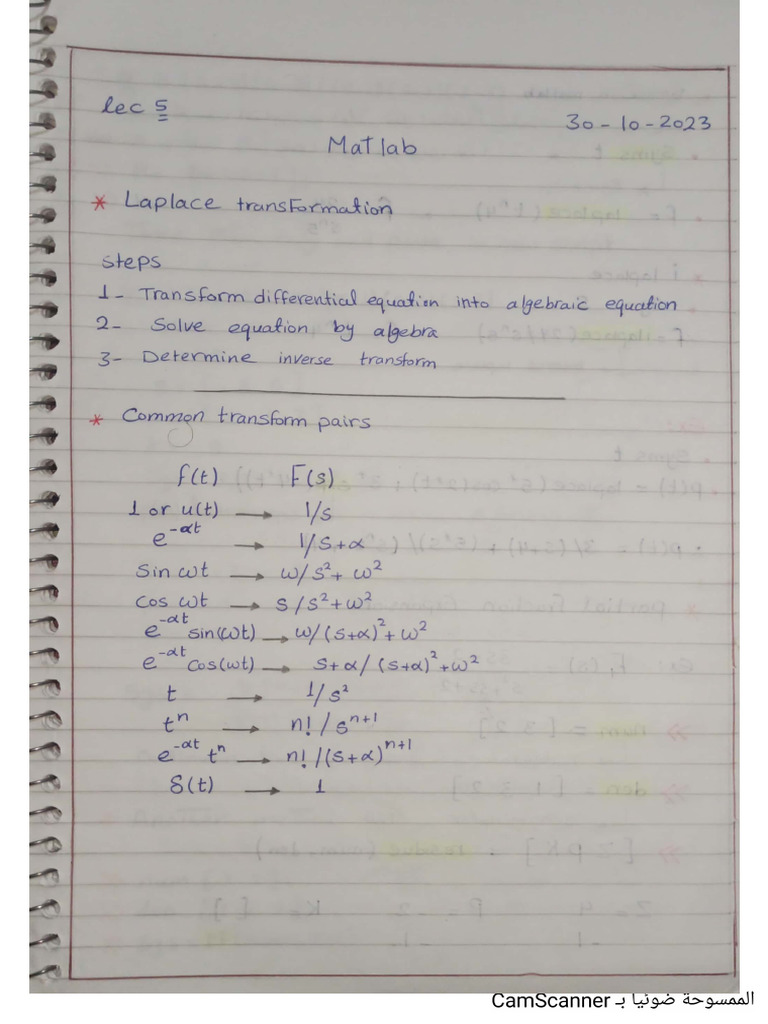 lec 5
30-10-2023
Matlab
* Laplace transformation
steps
1- Transform differential equation into algebraic equation
2- Solve equation by algebra
3- Determine inverse transform
* Common transform pairs
f(t) F(s)
1 or u(t) → 1/s
e^-αt → 1/s+α
Sin ωt → ω/s²+ω²
cos ωt → s/s²+ω²
e^-αt sin(ωt) → ω/(s+α)²+ω²
e^-αt cos(ωt) → s+α/(s+α)²+ω²
t → 1/s²
t^n → n!/s^n+1
e^-αt t^n → n!/(s+α)^n+1
δ(t) → 1
الممسوحة ضوئيا بـ CamScanner